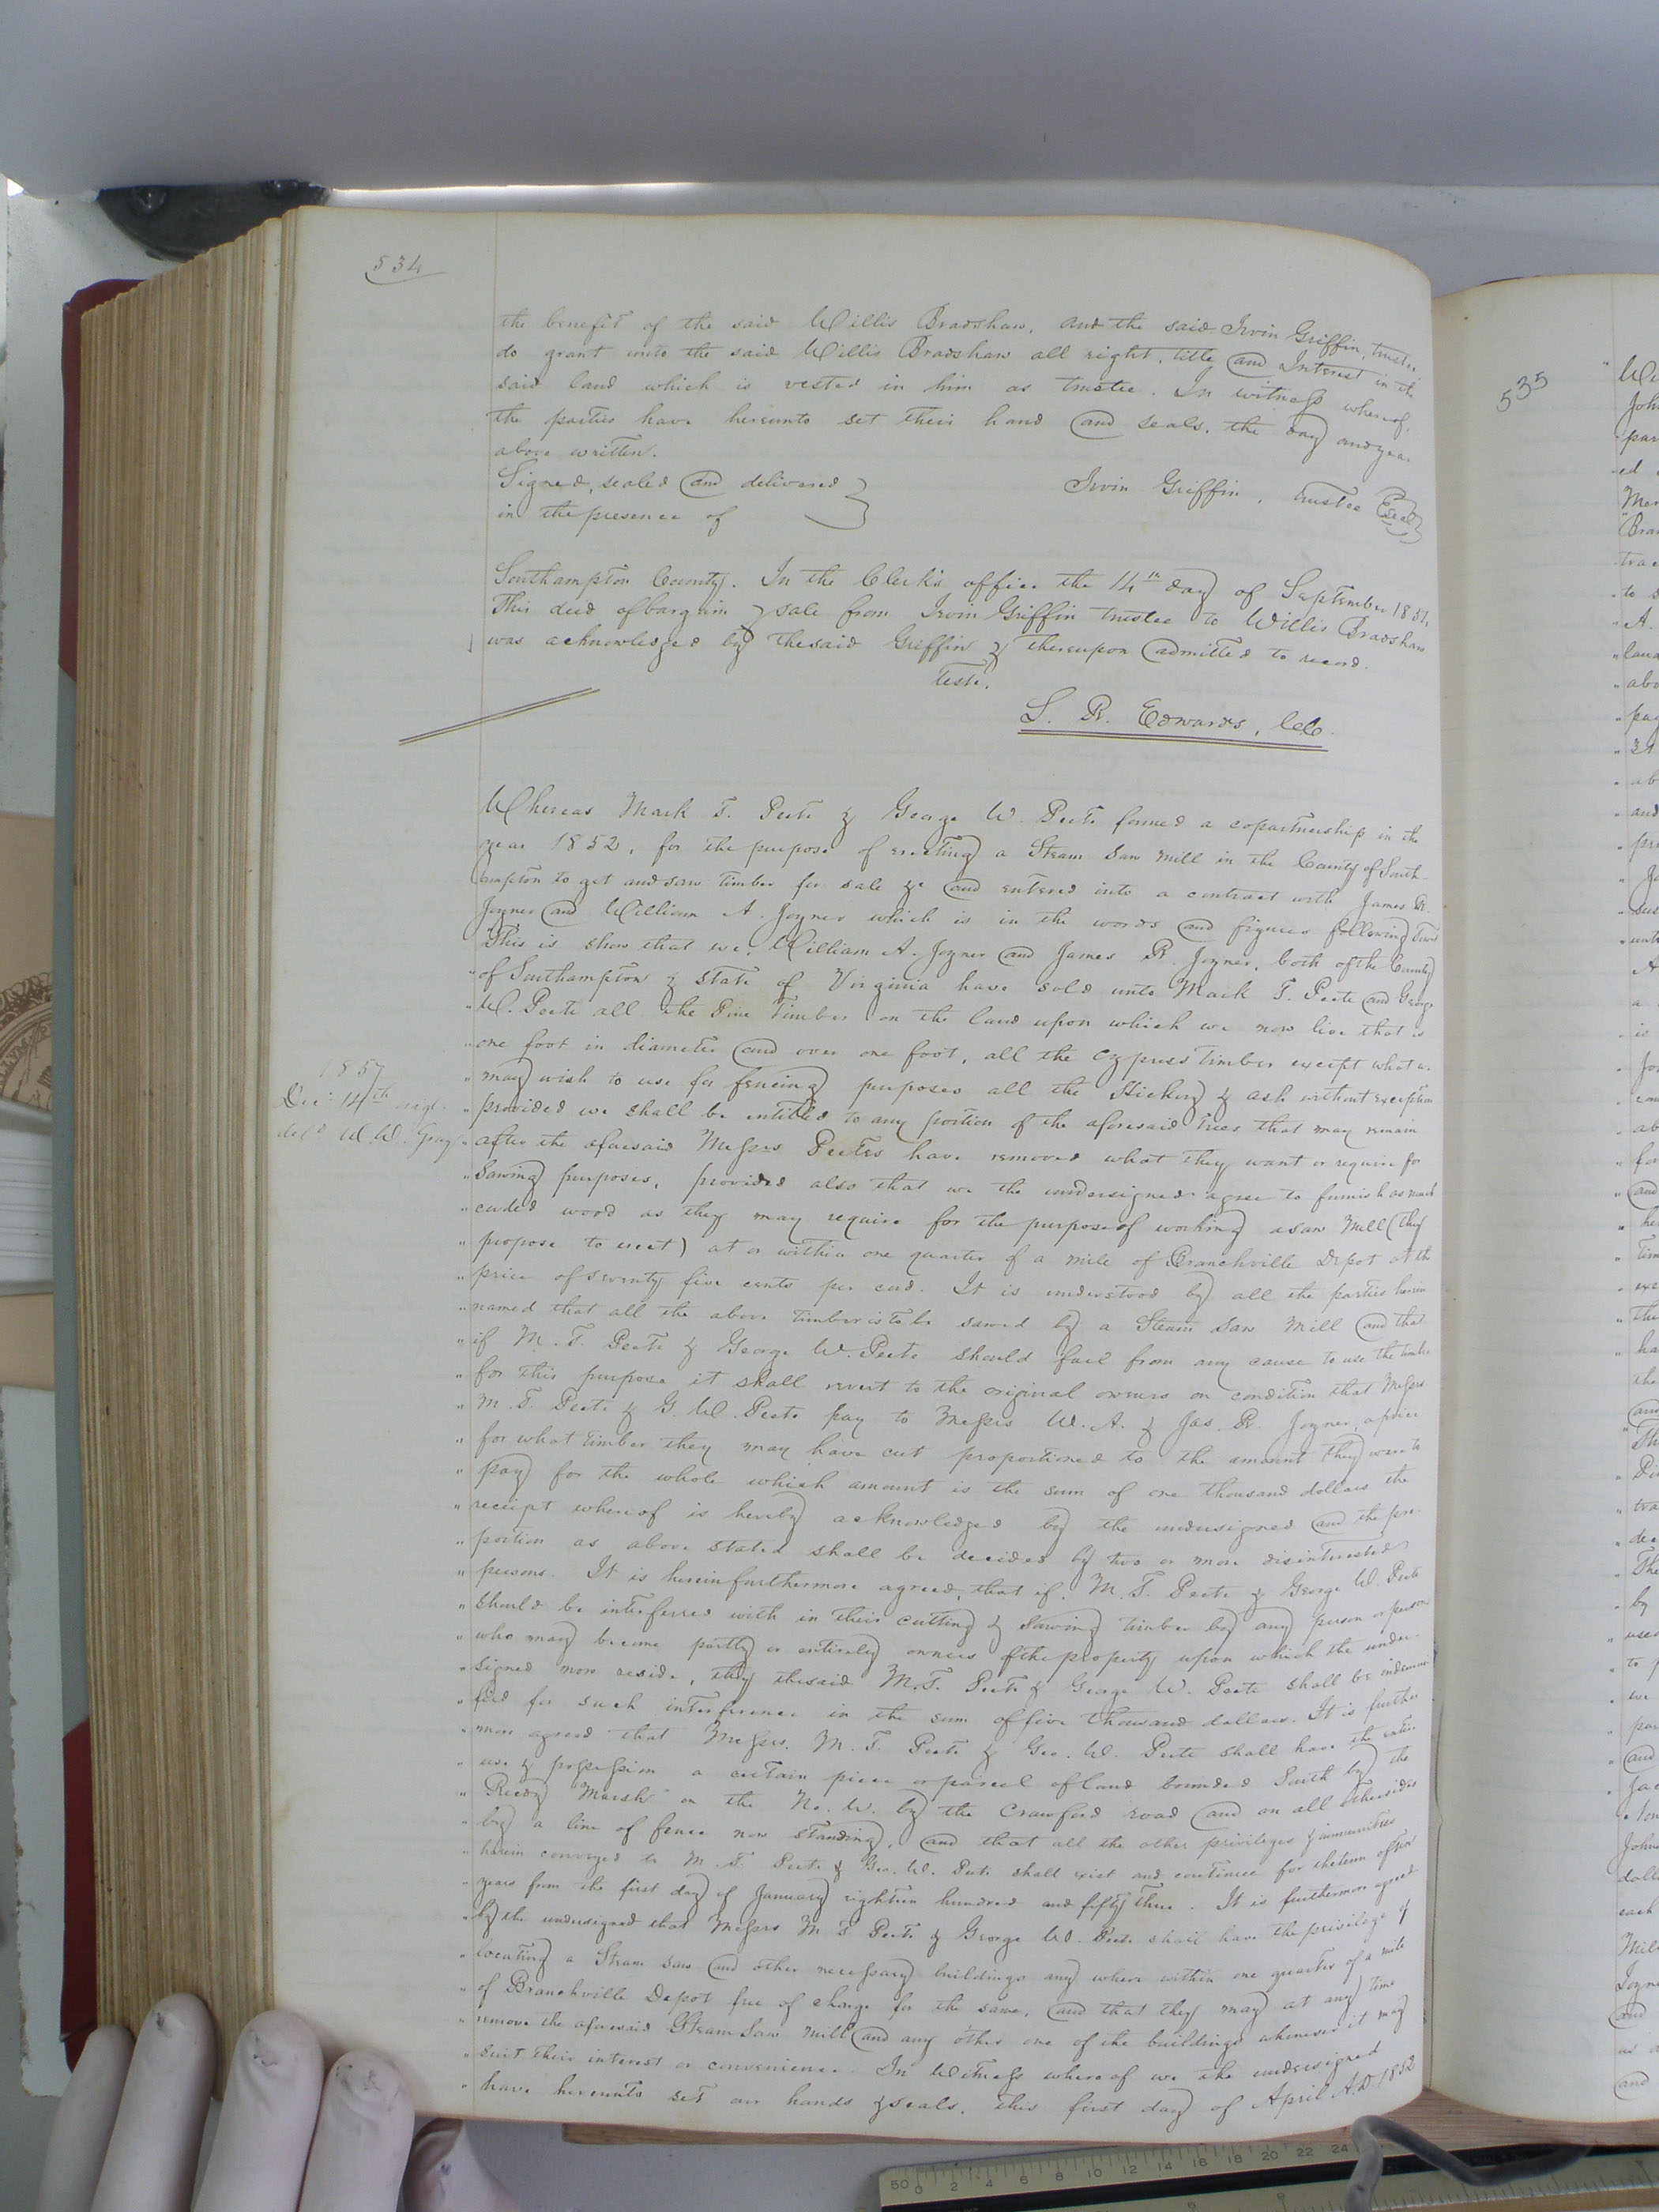 534
the benefit of the said Willis Bradshaw, and the said Irvin Griffin, trustee
do grant unto the said Willis Bradshaw all right, title and Interest in the
said land which is vested in him as trustee. In witness whereof,
the parties have hereunto set their hand and seals, the day and year
above written.
Signed, sealed and delivered
in the presence of
Irvin Griffin, trustee Seal
Southampton County. In the Clerk's office the 14th day of September 1857,
This deed of bargain & sale from Irvin Griffin trustee to Willis Bradshaw
was acknowledged by the said Griffin & thereupon admitted to record.
Teste,
L. R. Edwards, CC
Whereas Mark T. Peete & George W. Peete formed a copartnership in the
year 1852, for the purpose of erecting a Steam Saw mill in the County of South-
ampton to get and saw timber for sale &c and entered into a contract with James R.
Joyner and William A. Joyner which is in the words and figures following
"This is show that we, William A. Joyner and James R. Joyner, both of the County
" of Southampton & State of Virginia have sold unto Mark T. Peete and George
" W. Peete all the Pine Timber on the land upon which we now live that is
" one foot in diameter and over one foot, all the Cypress timber except what we
" may wish to use for fencing purposes all the Hickory & ash without exception
" provided we shall be entitled to any portion of the aforesaid trees that may remain
" after the aforesaid Messrs Peetes have removed what they want or require for
" Sawing purposes, provided also that we the undersigned agree to furnish as much
" corded wood as they may require for the purpose of working a saw Mill (they
" propose to erect) at or within one quarter of a mile of Branchville Depot at the
" price of seventy five cents per cord. It is understood by all the parties herein
" named that all the above timber is to be sawed by a Steam Saw Mill and that
" if M. T. Peete & George W. Peete should fail from any cause to use the timber
" for this purpose it shall revert to the original owners on condition that Messrs
" M. T. Peete & G. W. Peete pay to Messrs W. A. & Jas. R. Joyner, a price
" for what timber they may have cut proportioned to the amount they were to
" pay for the whole which amount is the sum of one thousand dollars the
" receipt whereof is hereby acknowledged by the undersigned and the pro-
" portion as above stated shall be decided by two or more disinterested
" persons. It is herein furthermore agreed, that if M. T. Peete & George W. Peete
" should be interferred with in their cutting & Sawing timber by any person or person
" who may become partly or entirely owners of the property upon which the under-
" signed now reside, they the said M. T. Peete & George W. Peete shall be indemni
" fied for such interference in the sum of five thousand dollars. It is further
" more agreed that Messrs. M. T. Peete & Geo. W. Peete shall have the entire
" use & possession a certain piece or parcel of land bounded South by the
" Reedy Marsh on the No. W. by the Crawford road and on all other sides
" by a line of fence now standing, and that all the other privileges & immunities
" herein conveyed to M. T. Peete & Geo. W. Peete shall exist and continue for the term of
" years from the first day of January eighteen hundred and fifty three. It is furthermore agreed
" by the undersigned that Messrs M T Peete & George W. Peete shall have the privilege of
" locating a Steam saw and other necessary buildings any where within one quarter of a mile
" of Branchville Depot free of charge for the same, and that they may at any time
" remove the aforesaid Steam Saw mill and any other one of the buildings whenever it may
" suit their interest or convenience. In Witness whereof we the undersigned
" have hereunto set our hands & seals, this first day of April A.D. 1852
1857
Dec: 14th
W. W. Gray
535